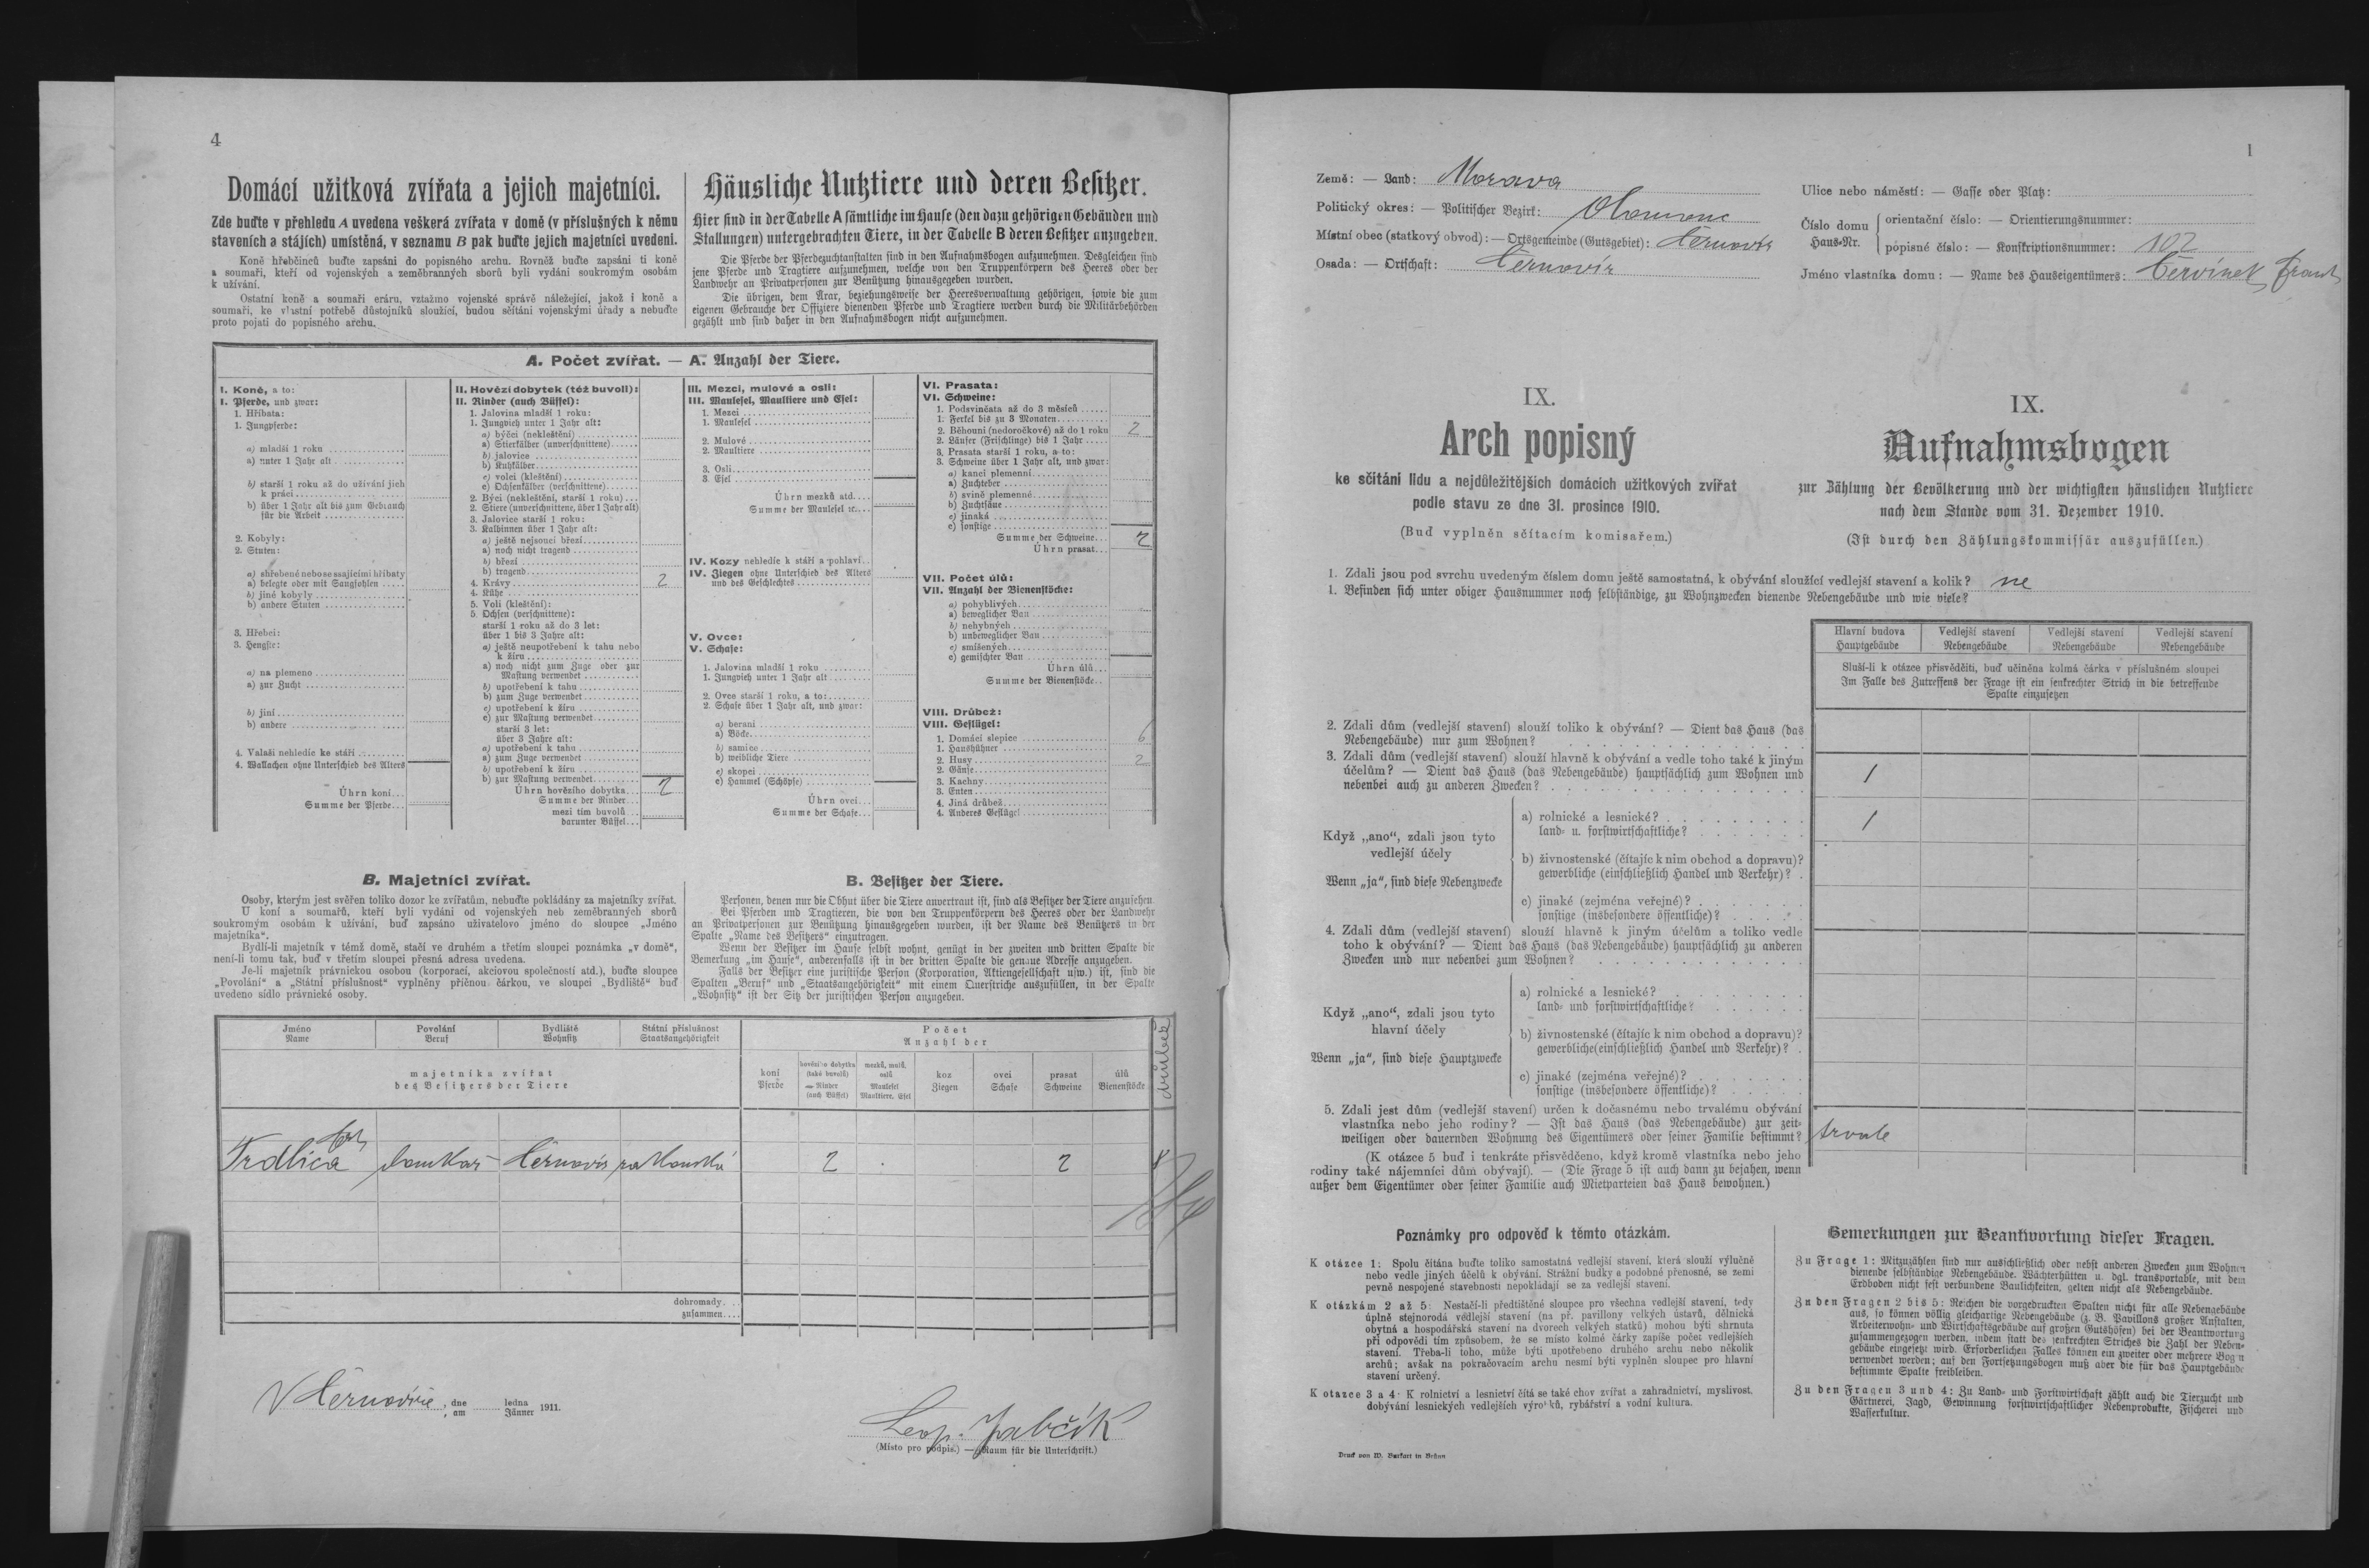 4
Domácí užitková zvířata a jejich majetníci.
Zde buďte v přehledu A uvedena veškerá zvířata v domě (v příslušných k němu
staveních a stájích) umístěná, v seznamu B pak buďte jejich majetníci uvedeni.
Koně hřebčinců buďte zapsáni do popisného archu. Rovněž buďte zapsáni ti koně
a soumaři, kteří od vojenských a zeměbranných sborů byli vydáni soukromým osobám
k užívání.
Ostatní koně a soumaři eráru, vztažmo vojenské správě náležející, jakož i koně a
soumaři, ke vlastní potřebě důstojníků sloužící, budou sčítáni vojenskými úřady a nebuďte
proto pojati do popisného archu.
Häusliche Nutztiere und deren Besitzer.
Hier sind in der Tabelle A sämtliche im Hause (den dazu gehörigen Gebäuden und
Stallungen) untergebrachten Tiere, in der Tabelle B deren Besitzer anzugeben.
Die Pferde der Pferdezuchtanstalten sind in den Aufnahmsbogen aufzunehmen. Desgleichen sind
jene Pferde und Tragtiere aufzunehmen, welche von den Truppenkörpern des Heeres oder der
Landwehr an Privatpersonen zur Benützung hinausgegeben wurden.
Die übrigen, dem Ärar, beziehungsweise der Heeresverwaltung gehörigen, sowie die zum
eigenen Gebrauche der Offiziere dienenden Pferde und Tragtiere werden durch die Militärbehörden
gezählt und sind daher in den Aufnahmsbogen nicht aufzunehmen.
A. Počet zvířat. — A. Anzahl der Tiere.
I. Koně, a to:
I. Pferde, und zwar:
1. Hříbata:
1. Jungpferde:
a) mladší 1 roku
a) unter 1 Jahr alt
b) starší 1 roku až do užívání jich
k práci
b) über 1 Jahr alt bis zum Gebrauch
für die Arbeit
2. Kobyly:
2. Stuten:
a) shřebené nebo se ssajícími hříbaty
a) belegte oder mit Saugfohlen
b) jiné kobyly
b) andere Stuten
3. Hřebci:
3. Hengste:
a) na plemeno
a) zur Zucht
b) jiní
b) andere
4. Valaši nehledíc ke stáří
4. Wallachen ohne Unterschied des Alters
Úhrn koní...
Summe der Pferde...
II. Hovězí dobytek (též buvoli):
II. Rinder (auch Büffel):
1. Jalovina mladší 1 roku:
1. Jungvieh unter 1 Jahr alt:
a) býčci (nekleštění)
a) Stierkälber (unverschnittene)
b) jalovice
b) Kuhkälber
c) volci (kleštění)
c) Ochsenkälber (verschnittene)
2. Býci (nekleštění, starší 1 roku)
2. Stiere (unverschnittene, über 1 Jahr alt)
3. Jalovice starší 1 roku:
3. Kalbinnen über 1 Jahr alt:
a) ještě nejsoucí březí
a) noch nicht tragend
b) březí
b) tragend
4. Krávy 2
4. Kühe
5. Voli (kleštění):
5. Ochsen (verschnittene):
starší 1 roku až do 3 let:
über 1 bis 3 Jahre alt:
a) ještě neupotřebení k tahu nebo
k žíru
a) noch nicht zum Zuge oder zur
Mastung verwendet
b) upotřebení k tahu
b) zum Zuge verwendet
c) upotřebení k žíru
c) zur Mastung verwendet
starší 3 let:
über 3 Jahre alt:
a) upotřebení k tahu
a) zum Zuge verwendet
b) upotřebení k žíru
b) zur Mastung verwendet
Úhrn hovězího dobytka... 2
Summe der Rinder...
mezi tím buvolů...
darunter Büffel...
III. Mezci, mulové a osli:
III. Maulesel, Maultiere und Esel:
1. Mezci
1. Maulesel
2. Mulové
2. Maultiere
3. Osli
3. Esel
Úhrn mezků atd....
Summe der Maulesel ꝛc....
IV. Kozy nehledíc k stáří a pohlaví
IV. Ziegen ohne Unterschied des Alters
und des Geschlechtes
V. Ovce:
V. Schafe:
1. Jalovina mladší 1 roku
1. Jungvieh unter 1 Jahr alt
2. Ovce starší 1 roku, a to:
2. Schafe über 1 Jahr alt, und zwar:
a) berani
a) Böcke
b) samice
b) weibliche Tiere
c) skopci
c) Hammel (Schöpse)
Úhrn ovcí...
Summe der Schafe...
VI. Prasata:
VI. Schweine:
1. Podsvinčata až do 3 měsíců
1. Ferkel bis zu 3 Monaten
2. Běhouni (nedoročkové) až do 1 roku 2
2. Läufer (Frischlinge) bis 1 Jahr
3. Prasata starší 1 roku, a to:
3. Schweine über 1 Jahr alt, und zwar:
a) kanci plemenní
a) Zuchteber
b) svině plemenné
b) Zuchtsäue
c) jinaká
c) sonstige
Summe der Schweine... 2
Úhrn prasat...
VII. Počet úlů:
VII. Anzahl der Bienenstöcke:
a) pohyblivých
a) beweglicher Bau
b) nehybných
b) unbeweglicher Bau
c) smíšených
c) gemischter Bau
Úhrn úlů...
Summe der Bienenstöcke..
VIII. Drůbež:
VIII. Geflügel:
1. Domácí slepice 6
1. Haushühner
2. Husy 2
2. Gänse
3. Kachny
3. Enten
4. Jiná drůbež
4. Anderes Geflügel
B. Majetníci zvířat.
Osoby, kterým jest svěřen toliko dozor ke zvířatům, nebuďte pokládány za majetníky zvířat.
U koní a soumarů, kteří byli vydáni od vojenských neb zeměbranných sborů
soukromým osobám k užívání, buď zapsáno uživatelovo jméno do sloupce „Jméno
majetníka“.
Bydlí-li majetník v témž domě, stačí ve druhém a třetím sloupci poznámka „v domě“,
není-li tomu tak, buď v třetím sloupci přesná adresa uvedena.
Je-li majetník právnickou osobou (korporací, akciovou společností atd.), buďte sloupce
„Povolání“ a „Státní příslušnost“ vyplněny příčnou čárkou, ve sloupci „Bydliště“ buď
uvedeno sídlo právnické osoby.
B. Besitzer der Tiere.
Personen, denen nur die Obhut über die Tiere anvertraut ist, sind als Besitzer der Tiere anzusehen.
Bei Pferden und Tragtieren, die von den Truppenkörpern des Heeres oder der Landwehr
an Privatpersonen zur Benützung hinausgegeben wurden, ist der Name des Benützers in der
Spalte „Name des Besitzers“ einzutragen.
Wenn der Besitzer im Hause selbst wohnt, genügt in der zweiten und dritten Spalte die
Bemerkung „im Hause“, anderenfalls ist in der dritten Spalte die genaue Adresse anzugeben.
Falls der Besitzer eine juristische Person (Korporation, Aktiengesellschaft usw.) ist, sind die
Spalten „Beruf“ und „Staatsangehörigkeit“ mit einem Querstriche auszufüllen, in der Spalte
„Wohnsitz“ ist der Sitz der juristischen Person anzugeben.
Jméno Povolání Bydliště Státní příslušnost Počet
Name Beruf Wohnsitz Staatsangehörigkeit Anzahl der
majetníka zvířat
des Besitzers der Tiere
koní hovězího dobytka (také buvolů) mezků, mulů, oslů koz ovcí prasat úlů drůbeže
Pferde Rinder (auch Büffel) Maulesel Maultiere, Esel Ziegen Schafe Schweine Bienenstöcke
Trdlica domkař Černovír rakouská 2 2 8
dohromady...
zusammen...
V Černovíře, dne ledna 1911.
, am Jänner
Leop. Jabčík
(Místo pro podpis.) — (Raum für die Unterschrift.)
1
Země: — Land: Morava
Politický okres: — Politischer Bezirk: Olomouc
Místní obec (statkový obvod): — Ortsgemeinde (Gutsgebiet): Černovír
Osada: — Ortschaft: Černovír
Ulice nebo náměstí: — Gasse oder Platz:
Číslo domu orientační číslo: — Orientierungsnummer:
Haus-Nr. popisné číslo: — Konskriptionsnummer: 102
Jméno vlastníka domu: — Name des Hauseigentümers: Červínek Frant
IX.
Arch popisný
ke sčítání lidu a nejdůležitějších domácích užitkových zvířat
podle stavu ze dne 31. prosince 1910.
(Buď vyplněn sčítacím komisařem.)
IX.
Aufnahmsbogen
zur Zählung der Bevölkerung und der wichtigsten häuslichen Nutztiere
nach dem Stande vom 31. Dezember 1910.
(Ist durch den Zählungskommissär auszufüllen.)
1. Zdali jsou pod svrchu uvedeným číslem domu ještě samostatná, k obývání sloužící vedlejší stavení a kolik? ne
1. Befinden sich unter obiger Hausnummer noch selbständige, zu Wohnzwecken dienende Nebengebäude und wie viele?
Hlavní budova Vedlejší stavení Vedlejší stavení Vedlejší stavení
Hauptgebäude Nebengebäude Nebengebäude Nebengebäude
Sluší-li k otázce přisvědčiti, buď učiněna kolmá čárka v příslušném sloupci
Im Falle des Zutreffens der Frage ist ein senkrechter Strich in die betreffende
Spalte einzusetzen
2. Zdali dům (vedlejší stavení) slouží toliko k obývání? — Dient das Haus (das
Nebengebäude) nur zum Wohnen?
3. Zdali dům (vedlejší stavení) slouží hlavně k obývání a vedle toho také k jiným
účelům? — Dient das Haus (das Nebengebäude) hauptsächlich zum Wohnen und
nebenbei auch zu anderen Zwecken? 1
Když „ano“, zdali jsou tyto
vedlejší účely
Wenn „ja“, sind diese Nebenzwecke
a) rolnické a lesnické? 1
land- u. forstwirtschaftliche?
b) živnostenské (čítajíc k nim obchod a dopravu)?
gewerbliche (einschließlich Handel und Verkehr)?
c) jinaké (zejména veřejné)?
sonstige (insbesondere öffentliche)?
4. Zdali dům (vedlejší stavení) slouží hlavně k jiným účelům a toliko vedle
toho k obývání? — Dient das Haus (das Nebengebäude) hauptsächlich zu anderen
Zwecken und nur nebenbei zum Wohnen?
Když „ano“, zdali jsou tyto
hlavní účely
Wenn „ja“, sind diese Hauptzwecke
a) rolnické a lesnické?
land- und forstwirtschaftliche?
b) živnostenské (čítajíc k nim obchod a dopravu)?
gewerbliche (einschließlich Handel und Verkehr)?
c) jinaké (zejména veřejné)?
sonstige (insbesondere öffentliche)?
5. Zdali jest dům (vedlejší stavení) určen k dočasnému nebo trvalému obývání
vlastníka nebo jeho rodiny? — Ist das Haus (das Nebengebäude) zur zeit-
weiligen oder dauernden Wohnung des Eigentümers oder seiner Familie bestimmt? trvale
(K otázce 5 buď i tenkráte přisvědčeno, když kromě vlastníka nebo jeho
rodiny také nájemníci dům obývají). — (Die Frage 5 ist auch dann zu bejahen, wenn
außer dem Eigentümer oder seiner Familie auch Mietparteien das Haus bewohnen.)
Poznámky pro odpověď k těmto otázkám.
K otázce 1: Spolu čítána buďte toliko samostatná vedlejší stavení, která slouží výlučně
nebo vedle jiných účelů k obývání. Strážní budky a podobné přenosné, se zemí
pevně nespojené stavebnosti nepokládají se za vedlejší stavení.
K otázkám 2 až 5: Nestačí-li předtištěné sloupce pro všechna vedlejší stavení, tedy
úplně stejnorodá vedlejší stavení (na př. pavillony velkých ústavů, dělnická
obytná a hospodářská stavení na dvorech velkých statků) mohou býti shrnuta
při odpovědi tím způsobem, že se místo kolmé čárky zapíše počet vedlejších
stavení. Třeba-li toho, může býti upotřebeno druhého archu nebo několik
archů; avšak na pokračovacím archu nesmí býti vyplněn sloupec pro hlavní
stavení určený.
K otázce 3 a 4: K rolnictví a lesnictví čítá se také chov zvířat a zahradnictví, myslivost,
dobývání lesnických vedlejších výrobků, rybářství a vodní kultura.
Bemerkungen zur Beantwortung dieser Fragen.
Zu Frage 1: Mitzuzählen sind nur ausschließlich oder nebst anderen Zwecken zum Wohnen
dienende selbständige Nebengebäude. Wächterhütten u. dgl. transportable, mit dem
Erdboden nicht fest verbundene Baulichkeiten, gelten nicht als Nebengebäude.
Zu den Fragen 2 bis 5: Reichen die vorgedruckten Spalten nicht für alle Nebengebäude
aus, so können völlig gleichartige Nebengebäude (z. B. Pavillons großer Anstalten,
Arbeiterwohn- und Wirtschaftsgebäude auf großen Gutshöfen) bei der Beantwortung
zusammengezogen werden, indem statt des senkrechten Striches die Zahl der Neben-
gebäude eingesetzt wird. Erforderlichen Falles können ein zweiter oder mehrere Bogen
verwendet werden; auf den Fortsetzungsbogen muß aber die für das Hauptgebäude
bestimmte Spalte freibleiben.
Zu den Fragen 3 und 4: Zu Land- und Forstwirtschaft zählt auch die Tierzucht und
Gärtnerei, Jagd, Gewinnung forstwirtschaftlicher Nebenprodukte, Fischerei und
Wasserkultur.
Druck von W. Burkart in Brünn